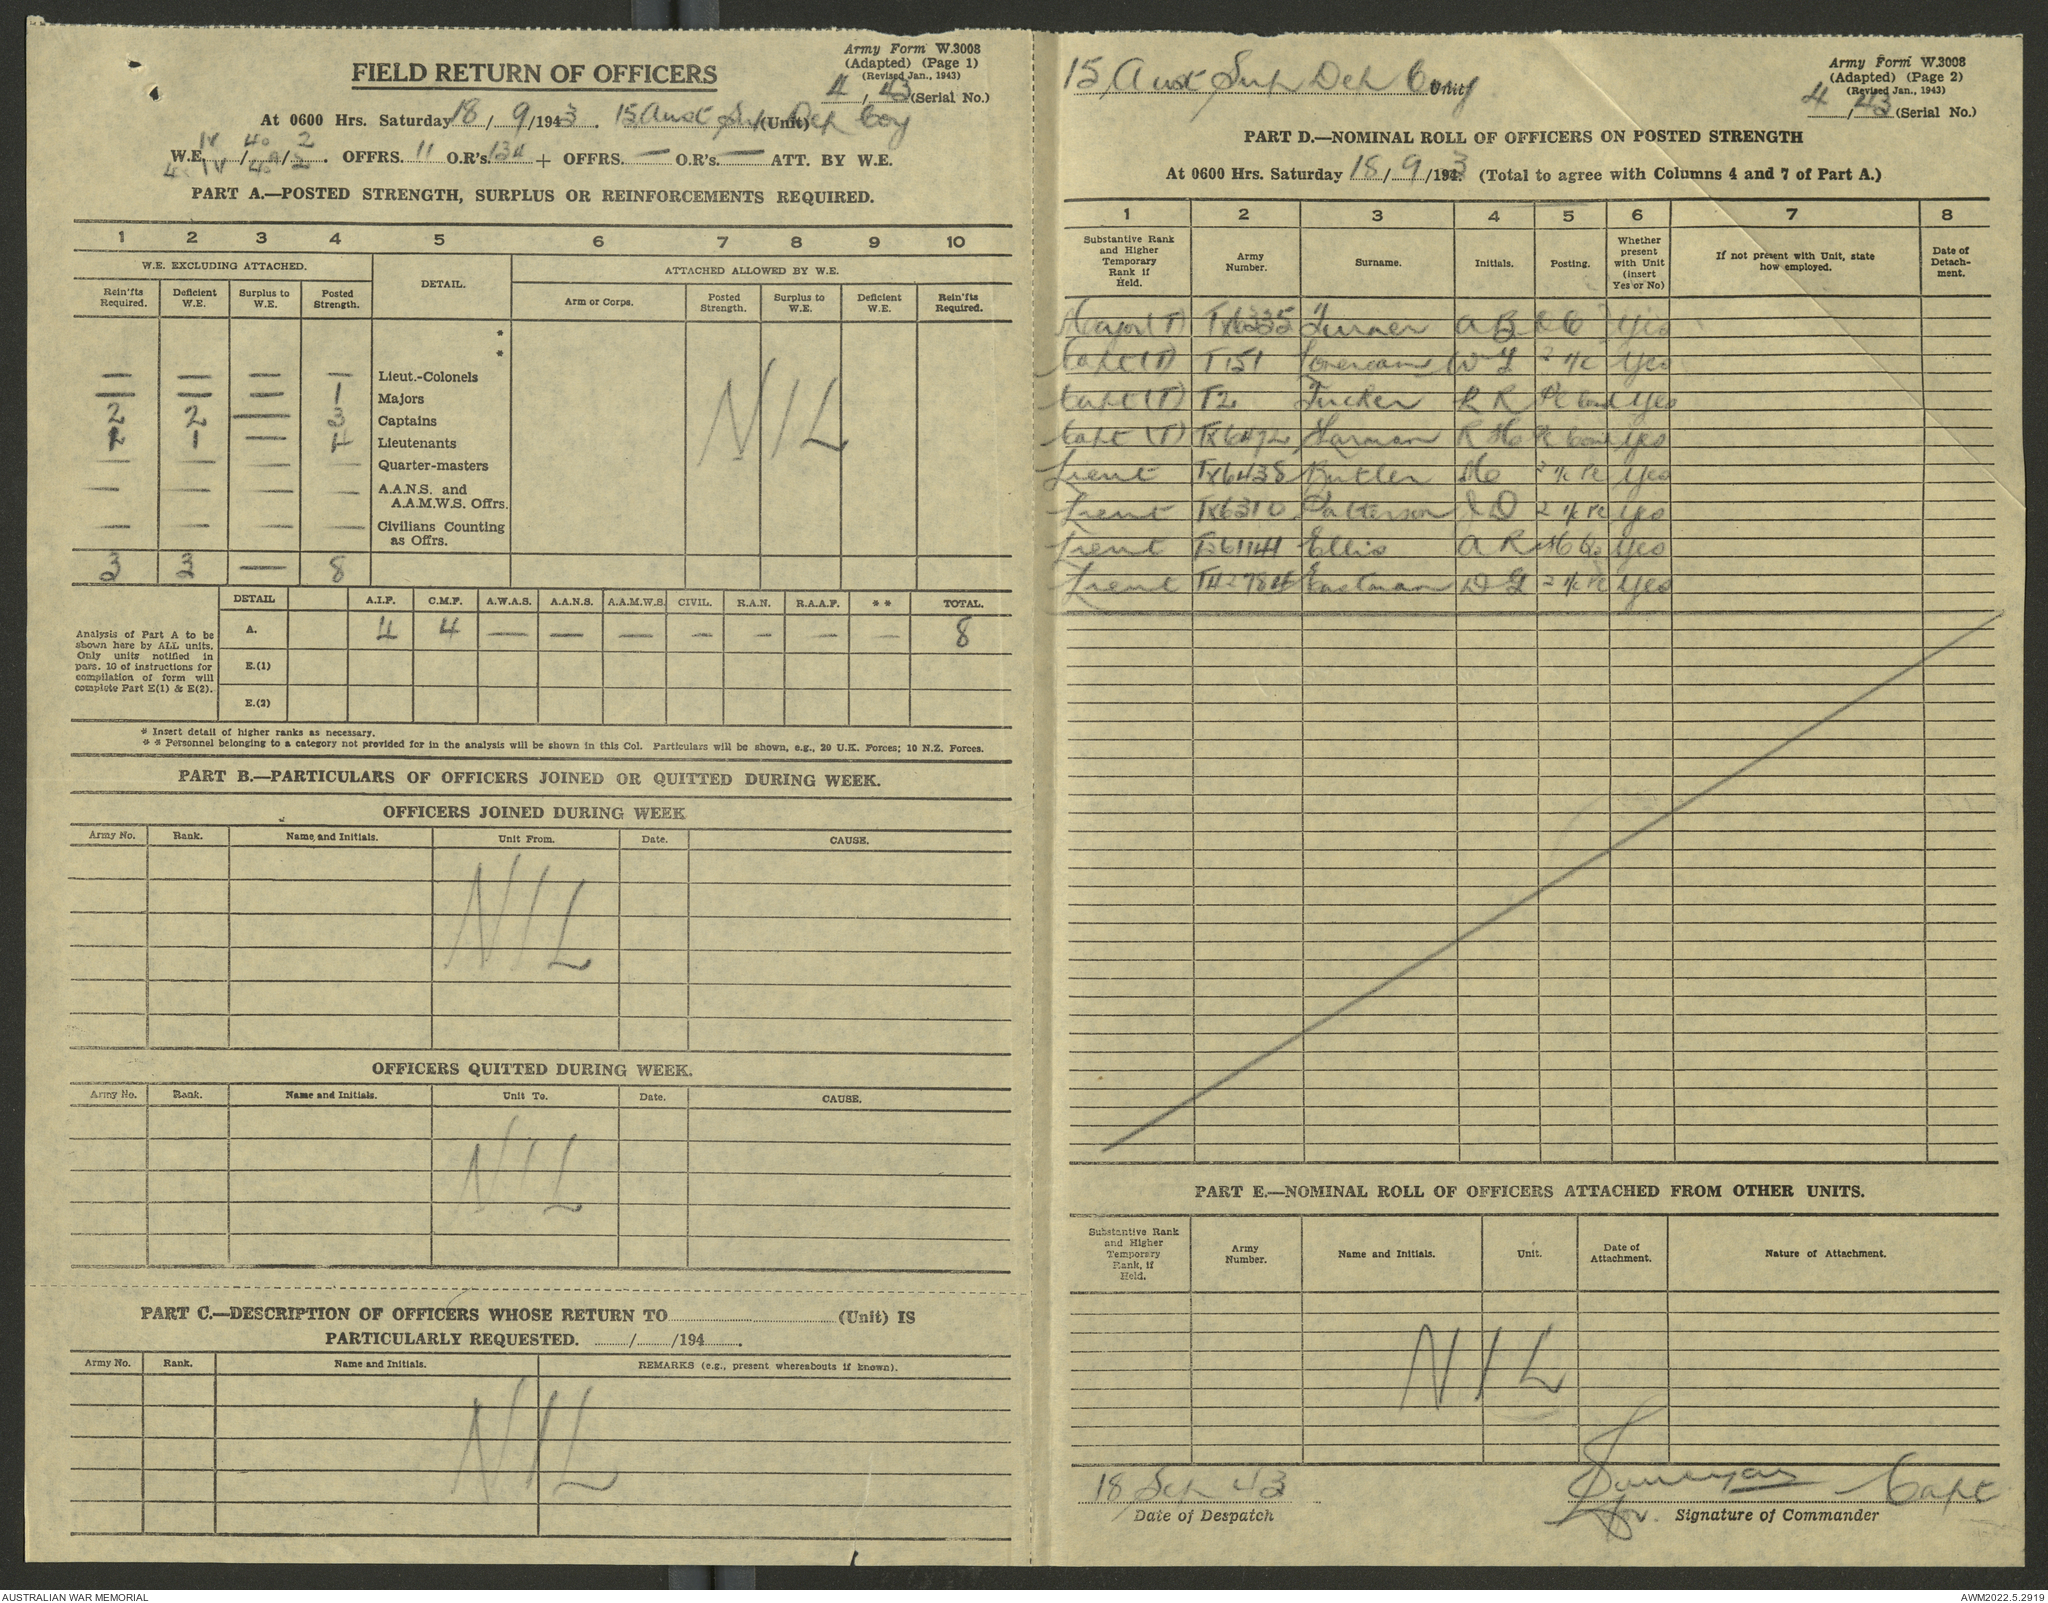 Army Form W.3008
(Adapted) (Page 1)
(Revised Jan., 1943)
FIELD RETURN OF OFFICERS
4, 43 (Serial No.)
At 0600 Hrs. Saturday 18/9/1943. 15 Aust Sup Dep Coy (Unit)
IV 40 2
W.E. IV/40/2. OFFRS. 11 O.R's. 134 + OFFRS. — O.R's. — ATT. BY W.E.
PART A.—POSTED STRENGTH, SURPLUS OR REINFORCEMENTS REQUIRED.
1 2 3 4 5 6 7 8 9 10
W.E. EXCLUDING ATTACHED. DETAIL. ATTACHED ALLOWED BY W.E.
Rein'fts Required. Deficient W.E. Surplus to W.E. Posted Strength. Arm or Corps. Posted Strength. Surplus to W.E. Deficient W.E. Rein'fts Required.
*
*
— — — — Lieut.-Colonels
— — — 1 Majors
2 2 — 3 Captains
1 1 — 4 Lieutenants
— — — — Quarter-masters
— — — — A.A.N.S. and A.A.M.W.S. Offrs.
— — — — Civilians Counting as Offrs.
NIL
3 3 — 8
DETAIL A.I.F. C.M.F. A.W.A.S. A.A.N.S. A.A.M.W.S. CIVIL. R.A.N. R.A.A.F. * * TOTAL.
A. 4 4 — — — — — — — 8
E.(1)
E.(2)
Analysis of Part A to be
shown here by ALL units.
Only units notified in
pars. 10 of instructions for
compilation of form will
complete Part E(1) & E(2).
* Insert detail of higher ranks as necessary.
* * Personnel belonging to a category not provided for in the analysis will be shown in this Col. Particulars will be shown, e.g., 20 U.K. Forces; 10 N.Z. Forces.
PART B.—PARTICULARS OF OFFICERS JOINED OR QUITTED DURING WEEK.
OFFICERS JOINED DURING WEEK
Army No. Rank. Name and Initials. Unit From. Date. CAUSE.
NIL
OFFICERS QUITTED DURING WEEK.
Army No. Rank. Name and Initials. Unit To. Date. CAUSE.
NIL
PART C.—DESCRIPTION OF OFFICERS WHOSE RETURN TO (Unit) IS
PARTICULARLY REQUESTED. / /194 .
Army No. Rank. Name and Initials. REMARKS (e.g., present whereabouts if known).
NIL
15 Aust Sup Dep Coy Unit
Army Form W.3008
(Adapted) (Page 2)
(Revised Jan., 1943)
4/43 (Serial No.)
PART D.—NOMINAL ROLL OF OFFICERS ON POSTED STRENGTH
At 0600 Hrs. Saturday 18/9/1943 (Total to agree with Columns 4 and 7 of Part A.)
1 2 3 4 5 6 7 8
Substantive Rank and Higher Temporary Rank if Held. Army Number. Surname. Initials. Posting. Whether present with Unit (insert Yes or No) If not present with Unit, state how employed. Date of Detachment.
Major (T) TX6335 Turner A B O C Yes
Capt (T) T151 W G 2 i/c Yes
Capt (T) T2 Tucker R R Pl Comd Yes
Capt (T) TX6472 Harman R H Pl Comd Yes
Lieut TX6438 Butler H 2 i/c Pl Yes
Lieut TX6310 Patterson J D 2 i/c Pl Yes
Lieut T361141 Ellis A R Yes
Lieut Eastman D G 2 i/c Pl Yes
PART E.—NOMINAL ROLL OF OFFICERS ATTACHED FROM OTHER UNITS.
Substantive Rank and Higher Temporary Rank, if Held. Army Number. Name and Initials. Unit. Date of Attachment. Nature of Attachment.
NIL
18 Sep 43 Capt
Date of Despatch for. Signature of Commander
AUSTRALIAN WAR MEMORIAL AWM2022.5.2919